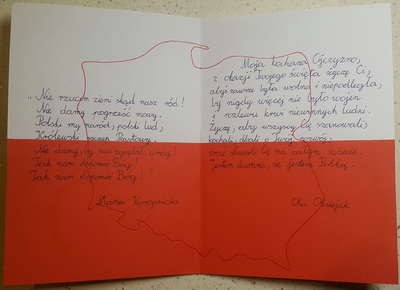 „Nie rzucim ziemi skąd nasz ród!
Nie damy pogrześć mowy.
Polski my naród, polski lud,
Królewski szczep Piastowy.
Nie damy, by nas zgnębił wróg!
Tak nam dopomóż Bóg!
Tak nam dopomóż Bóg!
Maria Konopnicka
Moja kochana Ojczyzno,
z okazji Twojego święta życzę Ci,
abyś zawsze była wolna i niepodległa,
by nigdy więcej nie było wojen
i rozlewu krwi niewinnych ludzi.
Życzę, aby wszyscy Cię szanowali,
kochali, dbali o Twój rozwój
oraz sławili Cię na całym świecie.
Jestem dumna, że jestem Polką.
Ola